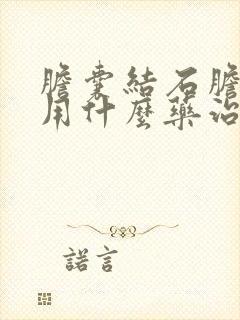 膽囊結石膽
用什麼藥治
諾言